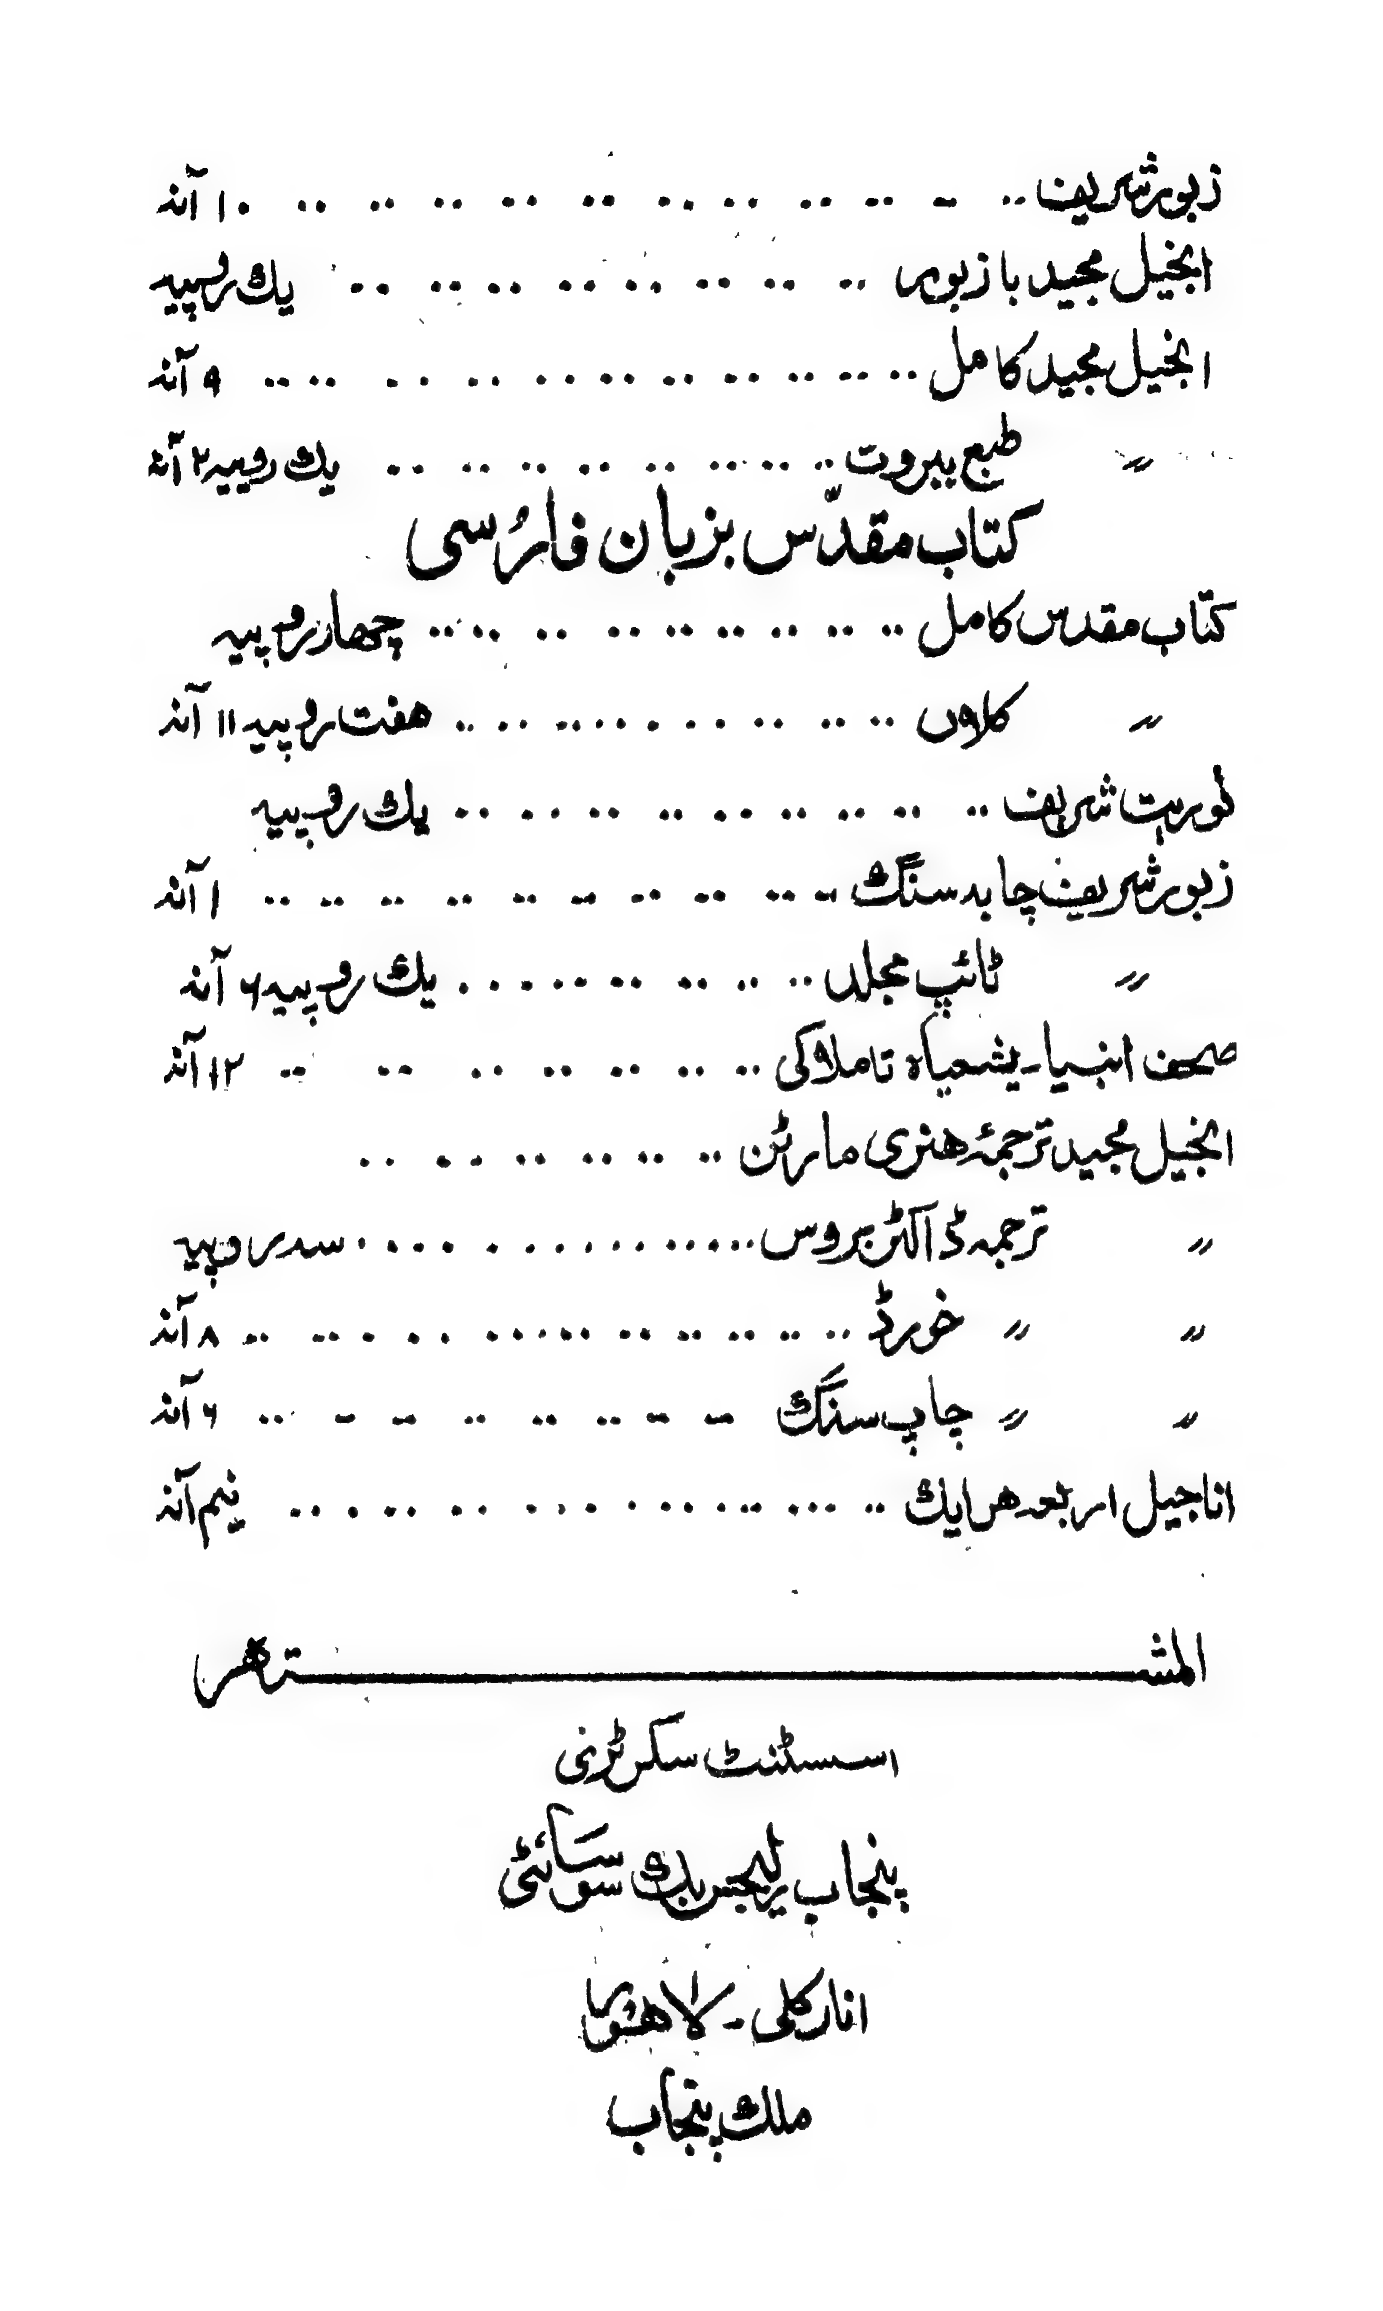 زبور شریف .. - .. .. .. .. .. .. .. .. .. ۱۰ آنہ
انجیل مجید با زبور .. .. .. .. .. .. .. .. یك روپیہ
انجیل مجید كامل .. .. .. .. .. .. .. .. .. .. .. ۹ آنہ
〃 طبع بیروت .. .. .. .. .. .. .. .. یك روپیہ ۲ آنہ
كتاب مقدّس بزبان فارسی
كتاب مقدس كامل .. .. .. .. .. .. .. .. .. چهار روپیہ
〃 كلاں .. .. .. .. .. .. .. .. هفت روپیہ ۱۱ آنہ
توریت شریف .. .. .. .. .. .. .. .. .. یك روپیہ
زبور شریف چاپہ سنگ .. .. .. .. .. .. .. .. .. .. ۱ آنہ
〃 ٹائپ مجلد .. .. .. .. .. .. .. یك روپیہ ۶ آنہ
صحف انبیا - یشعیاہ تا ملاكی .. .. .. .. .. .. .. ۱۲ آنہ
انجیل مجید ترجمۂ هنری مارٹن .. .. .. .. .. ..
〃 ترجمہ ڈاكٹر بروس .. .. .. .. .. .. .. .. سہ روپیہ
〃 〃 خورڈ .. .. .. .. .. .. .. .. .. .. .. ۸ آنہ
〃 〃 چاپ سنگ .. .. .. .. .. .. - - .. ۶ آنہ
اناجیل اربعہ هر ایك .. .. .. .. .. .. .. .. .. .. نیم آنہ
المشـــــــتهر
اسسٹنٹ سكرٹری
پنجاب ریلیجس بك سوسائٹی
انار كلی - لاهور
ملك پنجاب